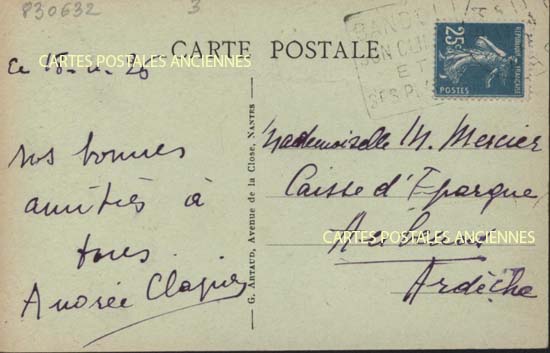 830632
3
CARTE POSTALE
CARTES POSTALES ANCIENNES
ce 15
Nos bonnes
amitiés à
tous.
Andrée
G. ARTAUD, Avenue de la Close, NANTES
BANDOL
SON CLIMAT
ET
SES
25c
REPUBLIQUE FRANÇAISE
Mademoiselle M. Mercier
Caisse d'Epargne
CARTES POSTALES ANCIENNES
Ardèche